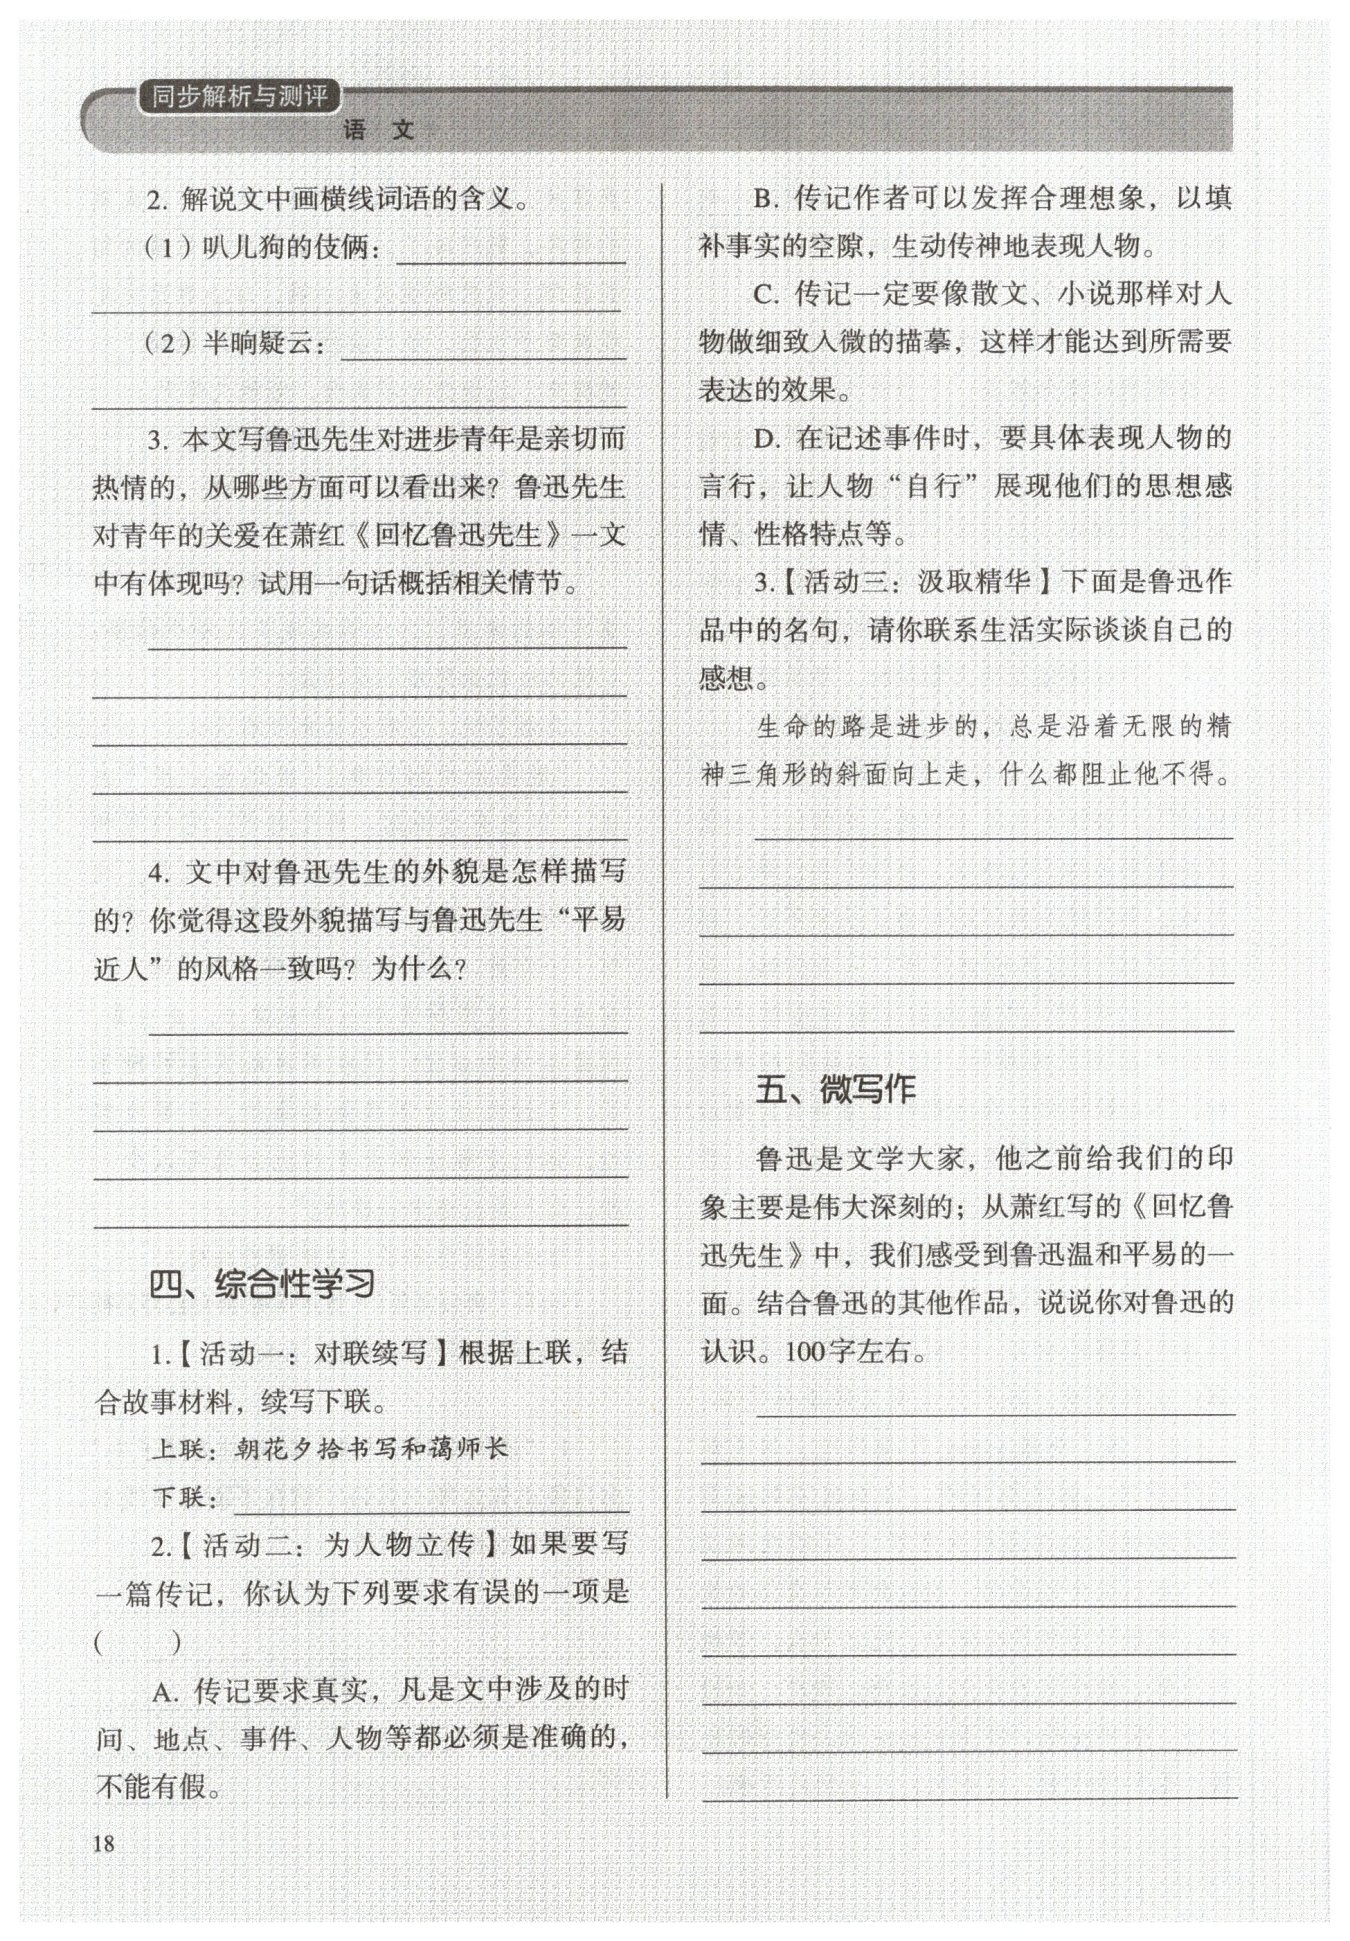 同步解析与测评
语 文
2. 解说文中画横线词语的含义。
（1）叭儿狗的伎俩：
（2）半晌疑云：
3. 本文写鲁迅先生对进步青年是亲切而
热情的，从哪些方面可以看出来？鲁迅先生
对青年的关爱在萧红《回忆鲁迅先生》一文
中有体现吗？试用一句话概括相关情节。
4. 文中对鲁迅先生的外貌是怎样描写
的？你觉得这段外貌描写与鲁迅先生“平易
近人”的风格一致吗？为什么？
四、综合性学习
1.【活动一：对联续写】根据上联，结
合故事材料，续写下联。
上联：朝花夕拾书写和蔼师长
下联：
2.【活动二：为人物立传】如果要写
一篇传记，你认为下列要求有误的一项是
（　　）
A. 传记要求真实，凡是文中涉及的时
间、地点、事件、人物等都必须是准确的，
不能有假。
18
B. 传记作者可以发挥合理想象，以填
补事实的空隙，生动传神地表现人物。
C. 传记一定要像散文、小说那样对人
物做细致入微的描摹，这样才能达到所需要
表达的效果。
D. 在记述事件时，要具体表现人物的
言行，让人物“自行”展现他们的思想感
情、性格特点等。
3.【活动三：汲取精华】下面是鲁迅作
品中的名句，请你联系生活实际谈谈自己的
感想。
生命的路是进步的，总是沿着无限的精
神三角形的斜面向上走，什么都阻止他不得。
五、微写作
鲁迅是文学大家，他之前给我们的印
象主要是伟大深刻的；从萧红写的《回忆鲁
迅先生》中，我们感受到鲁迅温和平易的一
面。结合鲁迅的其他作品，说说你对鲁迅的
认识。100字左右。